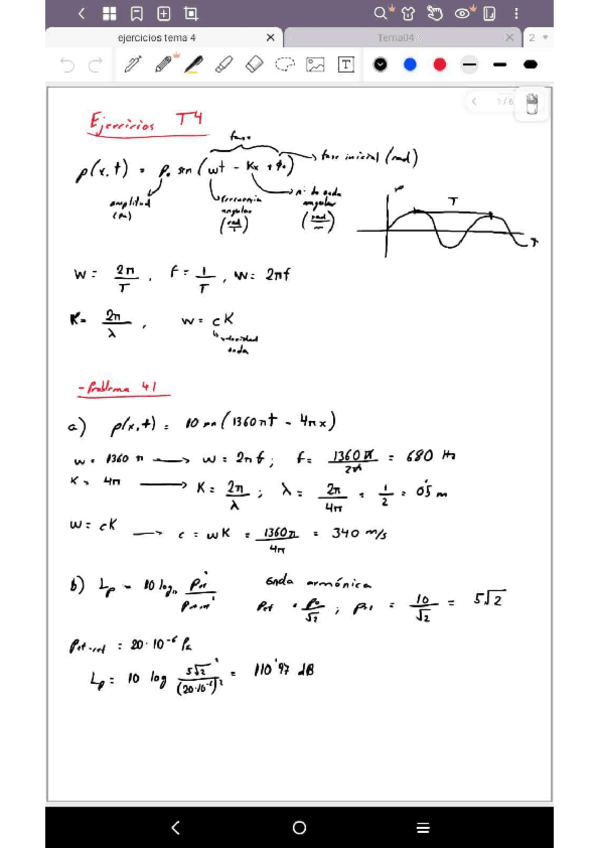 ejercicios tema 4 Tema04 2
1/6
Ejercicios T4
fase
p(x,t) = p₀ sen (wt - Kx + φ₀) → fase inicial (rad)
amplitud (Pa) frecuencia angular (rad/s) nº de onda angular (rad/m)
T
w = 2π/T , f = 1/T , w = 2πf
K = 2π/λ , w = cK
↳ velocidad onda
- Problema 4.1
a) p(x,t) = 10 sen (1360πt - 4πx)
w = 1360 π → w = 2πf ; f = 1360π/2π = 680 Hz
K = 4π → K = 2π/λ ; λ = 2π/4π = 1/2 = 0'5 m
w = cK → c = wK = 1360π/4π = 340 m/s
b) Lp = 10 log₁₀ Pef²/Pef-ref² Onda armónica
Pef = p₀/√2 ; Pef = 10/√2 = 5√2
Pef-ref = 20·10⁻⁶ Pa
Lp = 10 log 5√2²/(20·10⁻⁶)² = 110'97 dB